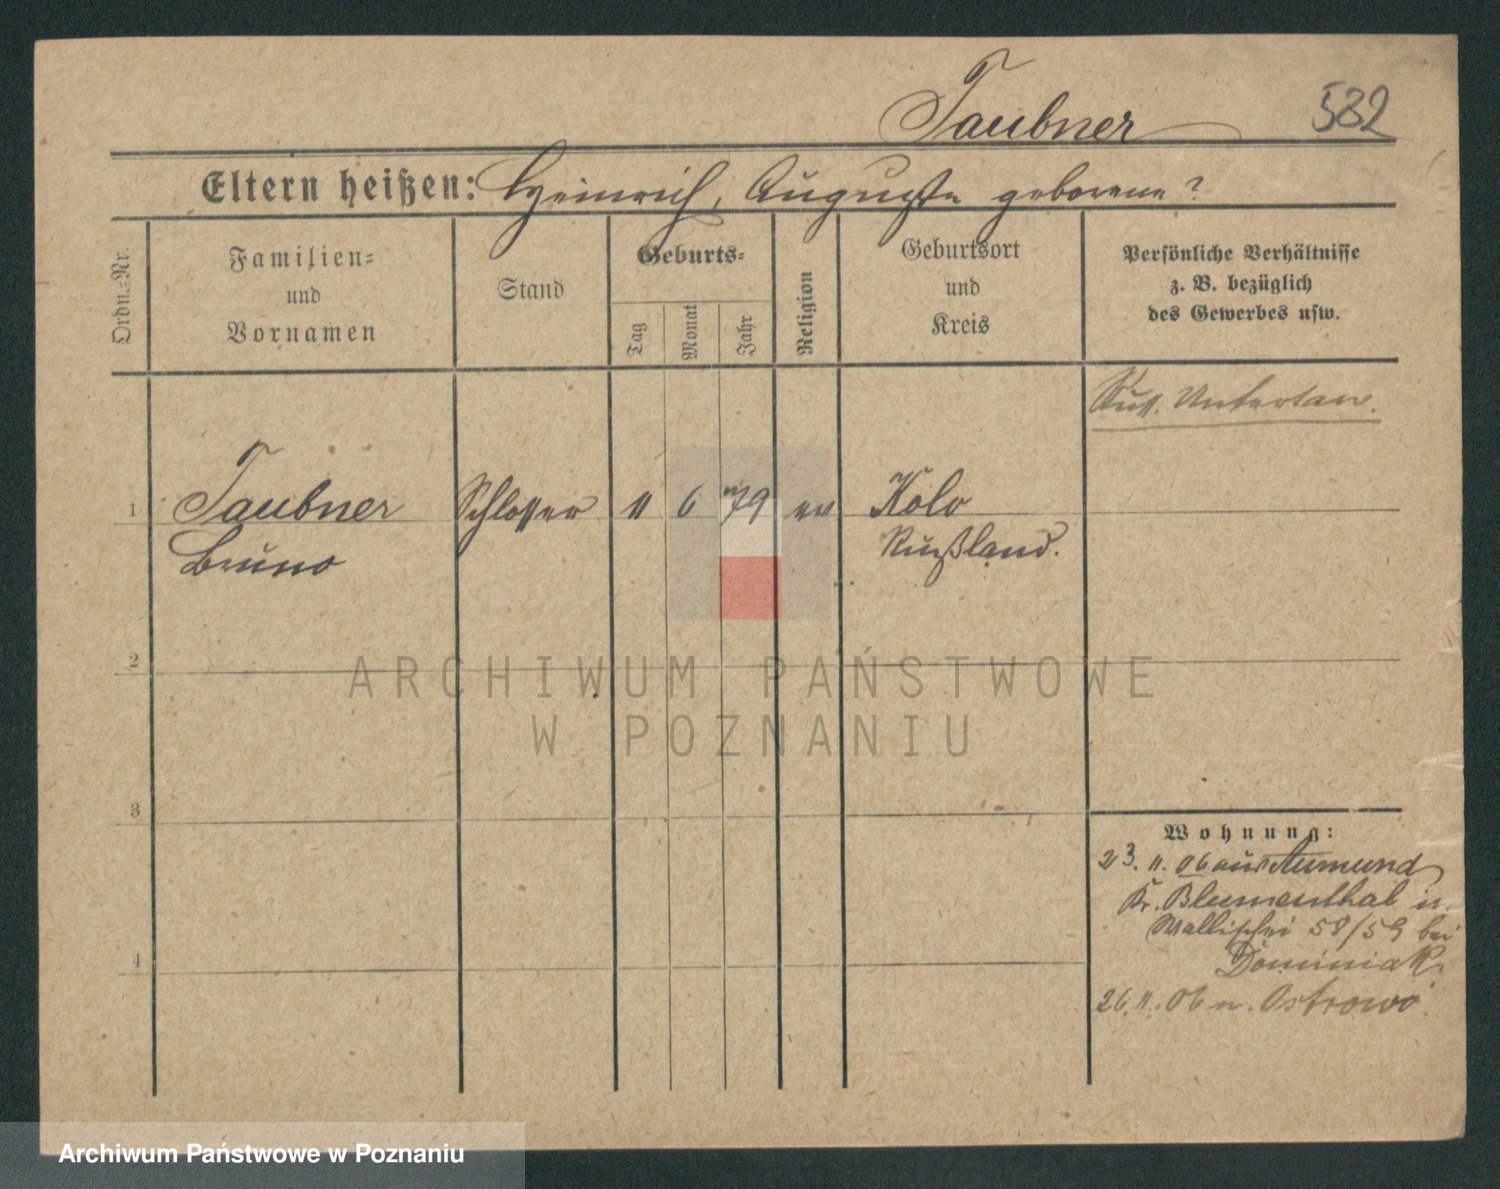 Taubner 582
Eltern heißen: Heinrich, Auguste geborene?
Ordn.-Nr.
Familien-
und
Vornamen
Stand
Geburts-
Tag
Monat
Jahr
Religion
Geburtsort
und
Kreis
Persönliche Verhältnisse
z. B. bezüglich
des Gewerbes usw.
Russ. Untertan.
1 Taubner Schlosser 11 6 79 ev Kolo
Bruno Rußland.
2
3
4
Wohnung:
23. 11. 06 aus Aumund
Kr. Blumenthal n.
Wallischei 58/59 bei
Dominiak
26. 11. 06 n. Ostrowo.
ARCHIWUM PAŃSTWOWE
W POZNANIU
Archiwum Państwowe w Poznaniu